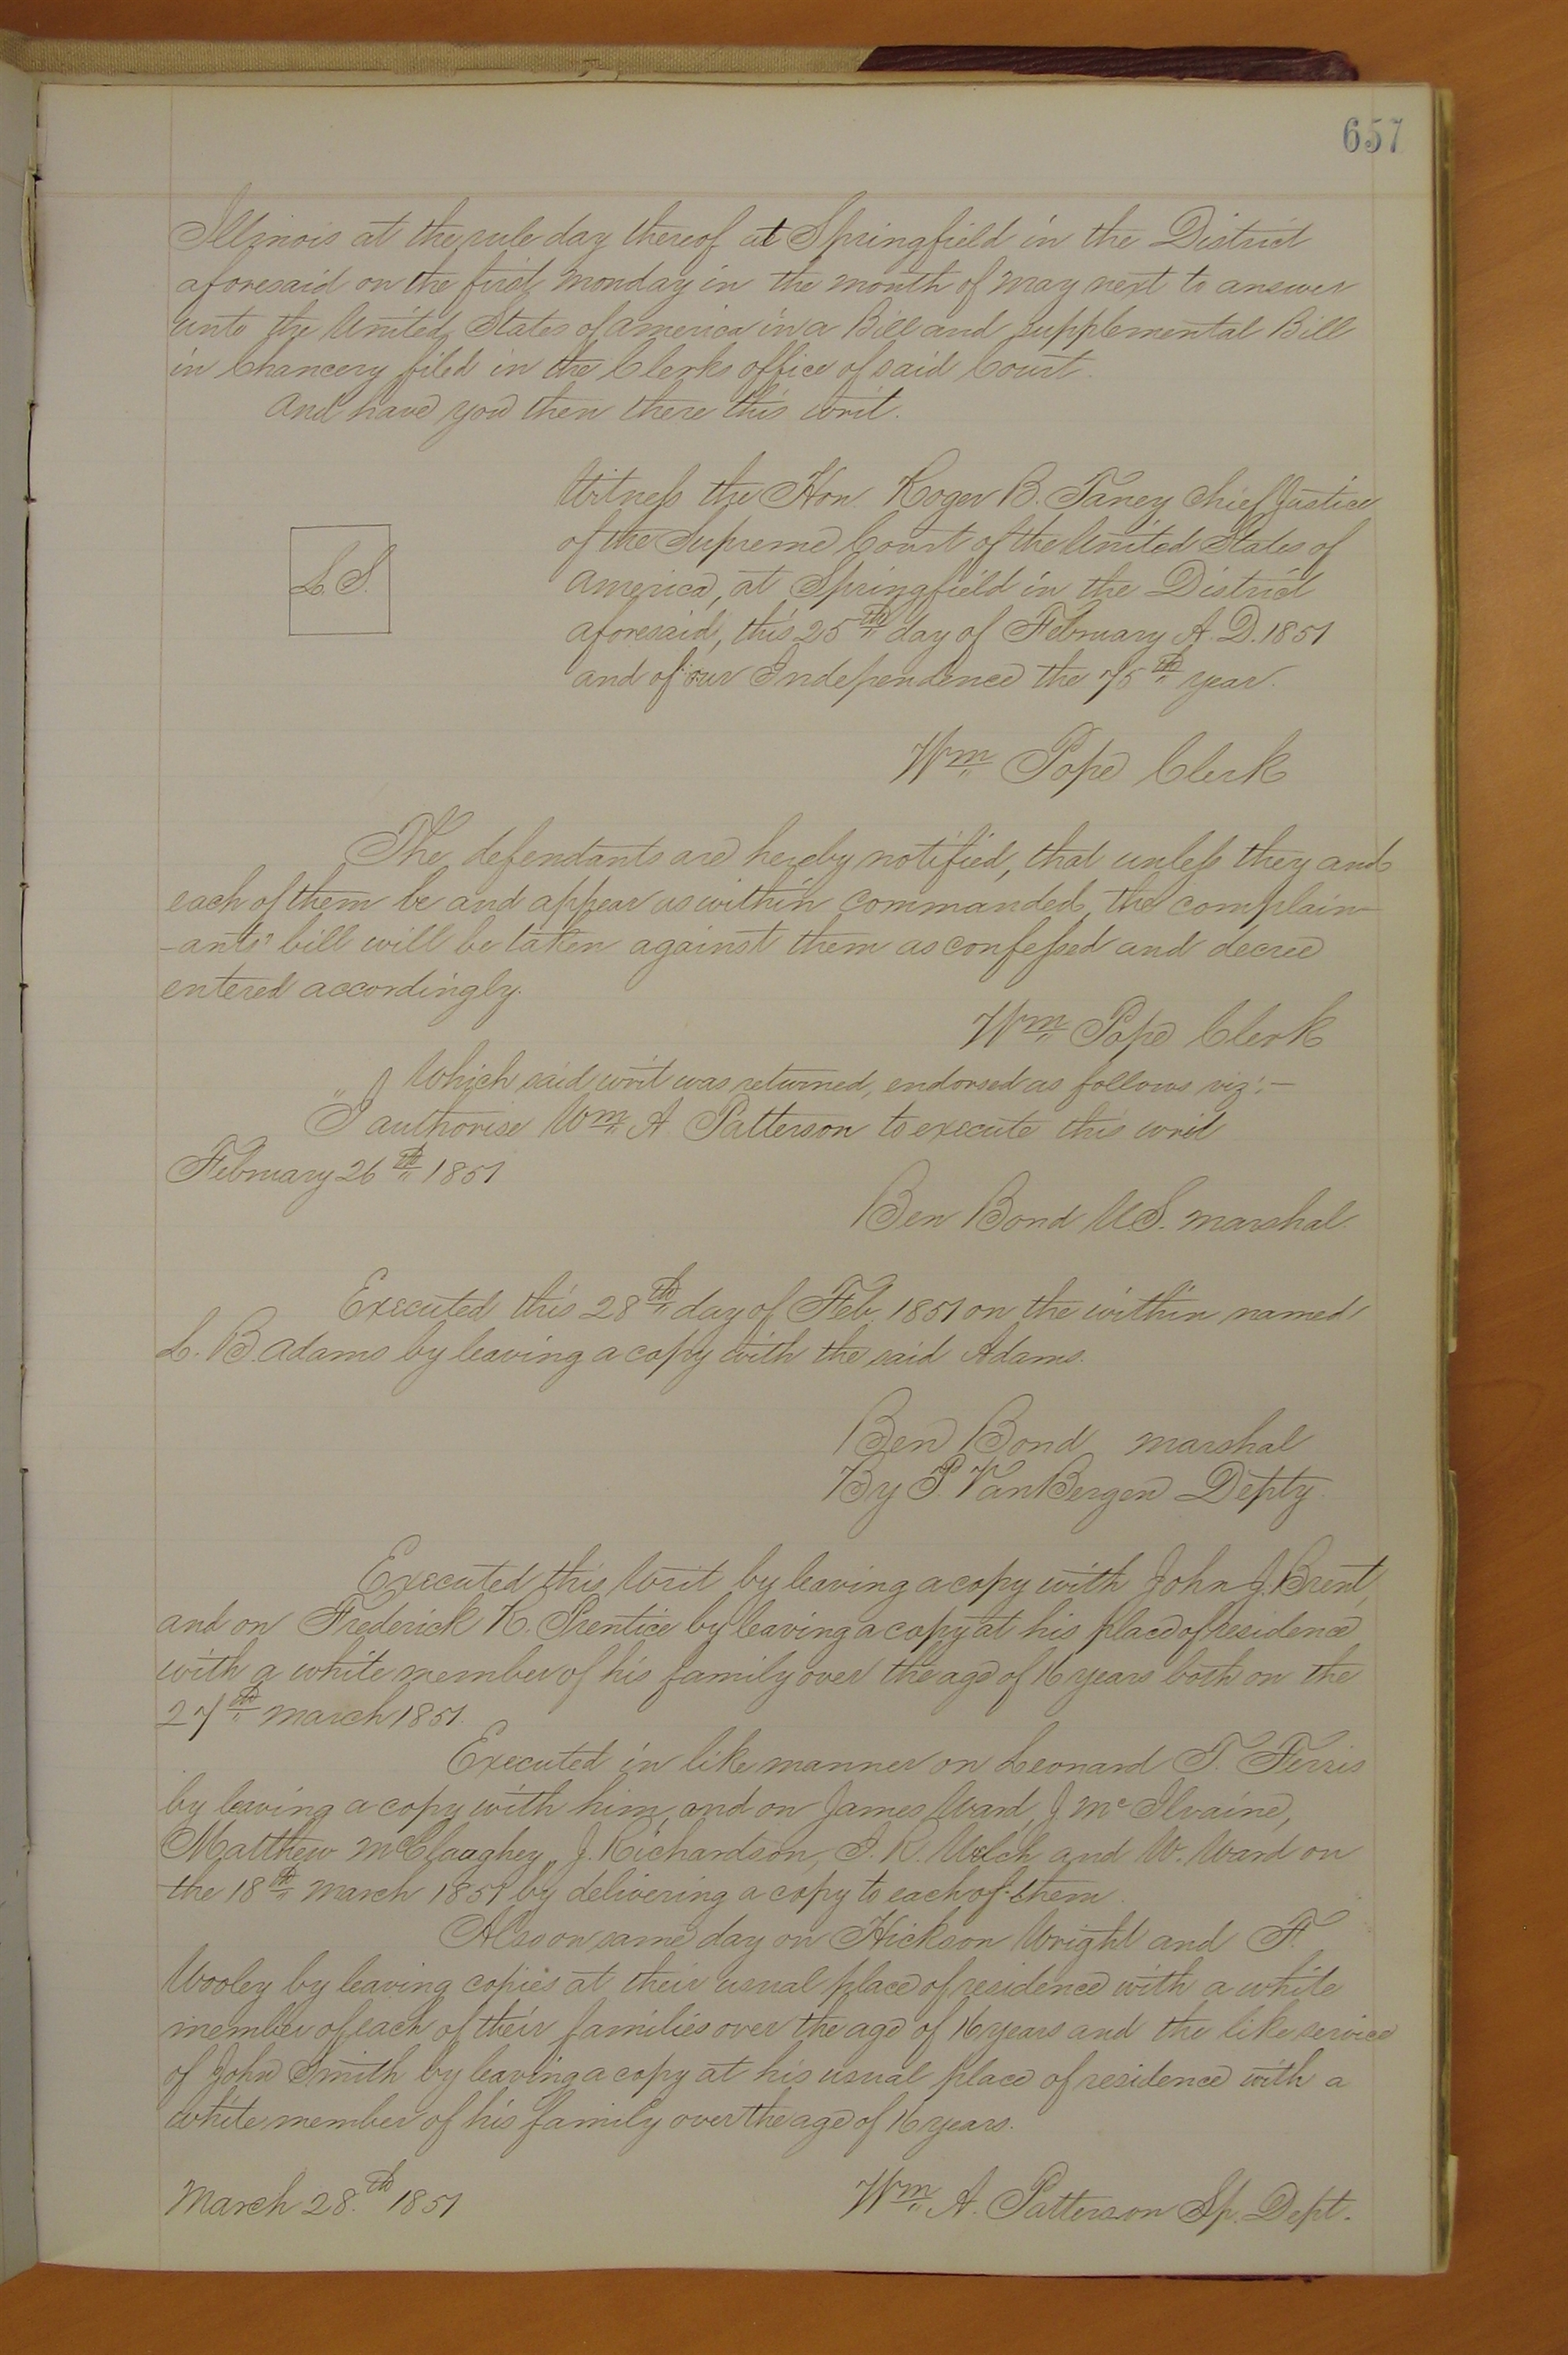 657
Illinois at the rule day thereof at Springfield in the District
aforesaid on the first Monday in the month of May next to answer
unto the United States of America in a Bill and supplemental Bill
in Chancery filed in the Clerks office of said Court.
And have you then there this writ.
Witness the Hon. Roger B. Taney Chief Justice
of the Supreme Court of the United States of
L. S.
America, at Springfield in the District
aforesaid, this 25th day of February A. D. 1851
and of our Independence the 75th year.
Wm Pope Clerk
The defendants are hereby notified, that unless they and
each of them be and appear as within commanded, the complain-
-ants' bill will be taken against them as confessed and decree
entered accordingly.
Wm Pope Clerk
Which said writ was returned, endorsed as follows viz:-
"I authorise Wm A Patterson to execute this writ
February 26th 1851
Ben Bond U.S. Marshal
Executed this 28th day of Feb. 1851 on the within named
L. B. Adams by leaving a copy with the said Adams.
Ben Bond Marshal
By P. VanBergen Depty.
Executed this Writ by leaving a copy with John J. Brent,
and on Frederick R. Prentice by leaving a copy at his place of residence
with a white member of his family over the age of 16 years both on the
27th March 1851.
Executed in like manner on Leonard T. Ferris
by leaving a copy with him, and on James Ward, J. McIlvaine,
Matthew McClaughey, J. Richardson, S. R. Welch and W. Ward on
the 18th March 1851 by delivering a copy to each of them.
Also on same day on Hickson Wright and F.
Wooley by leaving copies at their usual place of residence with a white
member of each of their families over the age of 16 years and the like service
of John Smith by leaving a copy at his usual place of residence with a
white member of his family over the age of 16 years.
March 28.th 1851
Wm A. Patterson Sp. Dept.